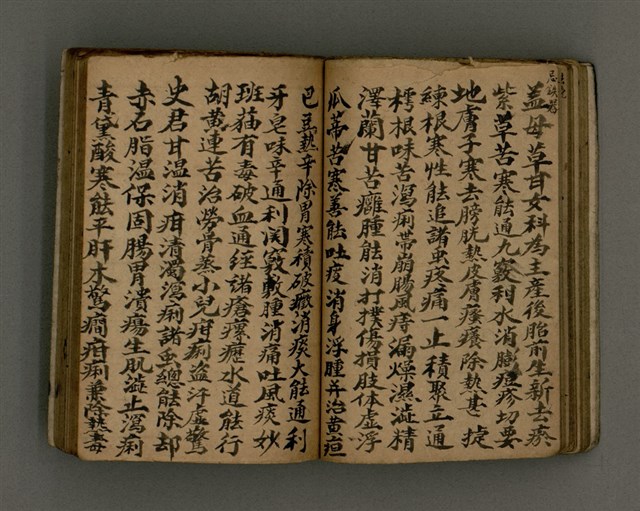 益母草甘女科為主產後胎前生新去瘀
紫草苦寒能通九竅利水消膨疸疹切要
地膚子寒去膀胱熱皮膚瘙癢除熱甚捷
練根寒性能追諸虫疼痛一止積聚立通
樗根味苦瀉痢帶崩腸風痔漏燥濕澁精
澤蘭甘苦癰腫能消打撲傷損肢体虛浮
瓜蒂苦寒善能吐痰消身浮腫并治黃疸
巴豆熱辛除胃寒積破癥消痰大能通利
牙皂味辛通利関竅敷腫消痛吐風痰妙
班猫有毒破血通経諸瘡瘰癧水道能行
胡黃連苦治勞骨蒸小兒疳痢盗汗虛驚
史君甘温消疳清濁瀉痢諸虫總能除却
赤石脂温保固腸胃潰瘍生肌澁止瀉痢
青黛酸寒能平肝木驚癎疳痢兼除熱毒